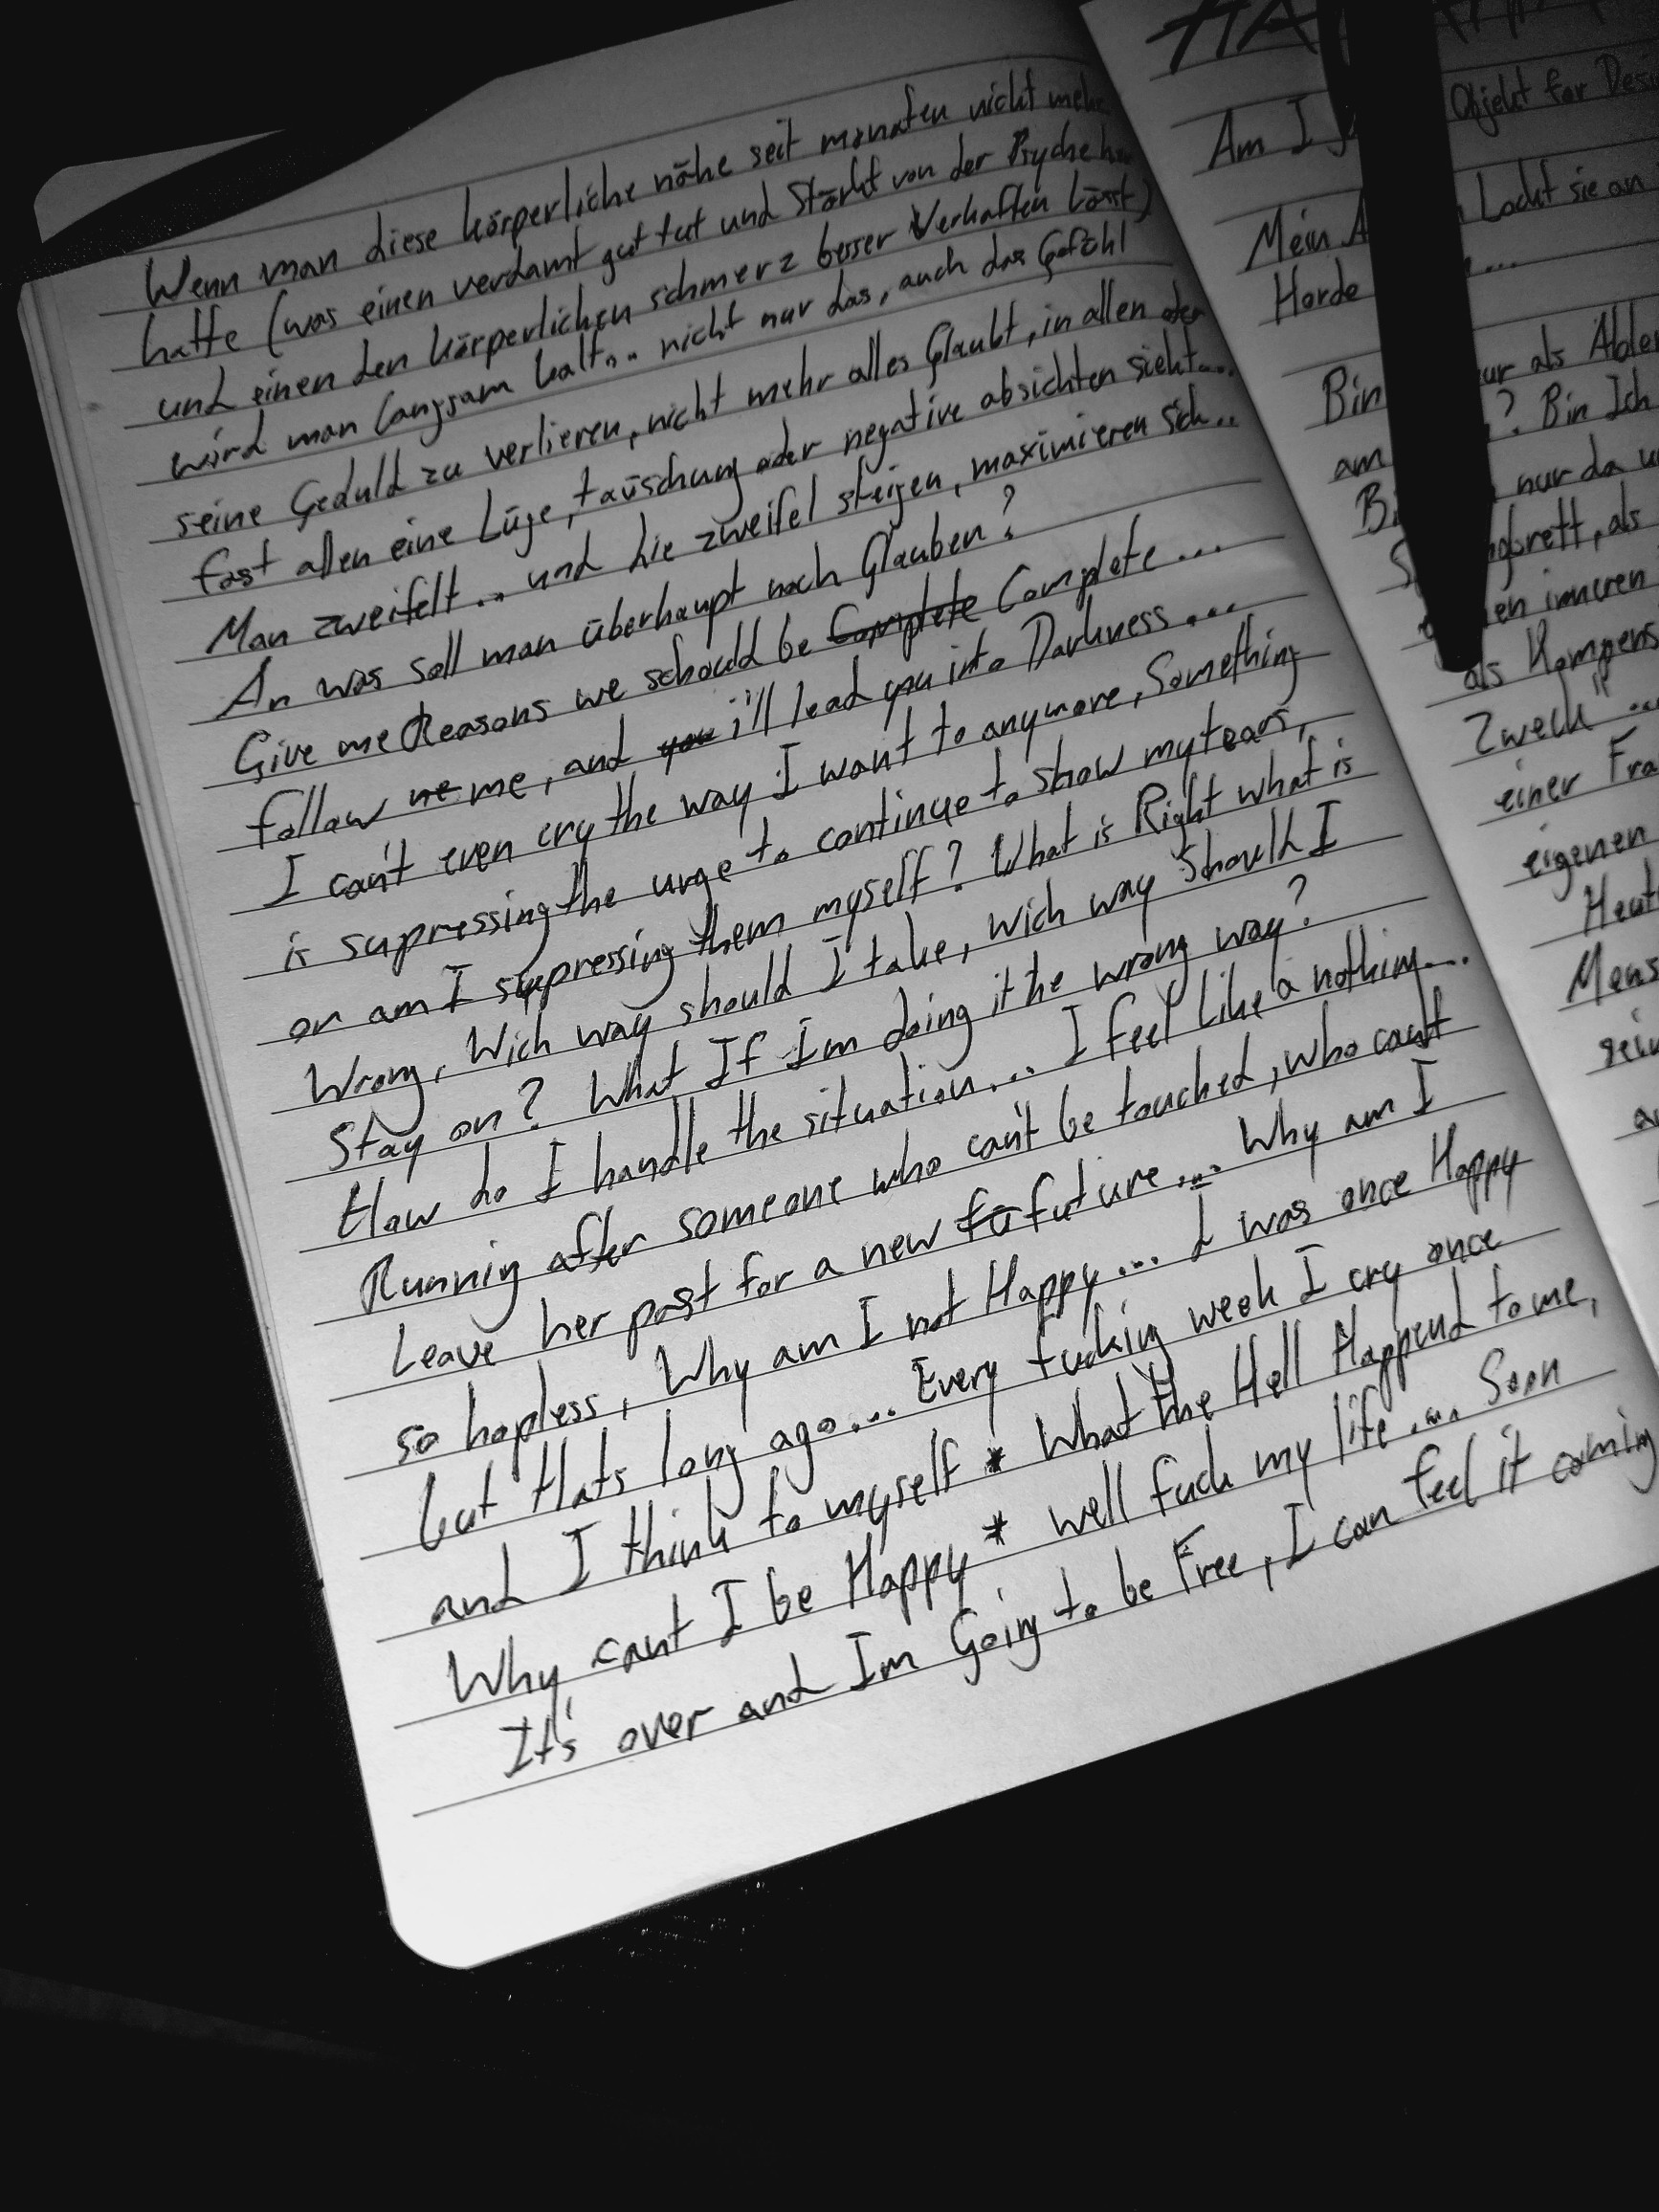 Wenn man diese körperliche nähe seit monaten nicht mehr
hatte (was einen verdamt gut tut und Stärkt von der Psyche her
und einen den körperlichen schmerz besser Verkraften Lässt)
wird man langsam kalt... nicht nur das, auch das Gefühl
seine Geduld zu verlieren, nicht mehr alles Glaubt, in allen oder
fast allen eine Lüge, täuschung oder negative absichten sieht...
Man zweifelt... und die zweifel steigen, maximieren sich..
An was soll man überhaupt noch Glauben?
Give me Reasons we should be Complete Complete...
follow me me, and you i'll lead you into Darkness....
I can't even cry the way I want to anymore, Something
is supressing the urge to continue to show my tears,
or am I supressing them myself? What is Right what is
Wrong, Wich way should I take, wich way Should I
Stay on? What If I'm doing it the wrong way?
How do I handle the situation... I feel Like a nothing...
Running after someone who can't be touched, who can't
Leave her past for a new fu future... Why am I
so hopless, Why am I not Happy... I was once Happy
but thats long ago... Every fucking week I cry once
and I think to myself * What the Hell Happend to me,
Why cant I be Happy * well fuck my life... Soon
It's over and Im Going to be Free, I can feel it coming
Am I
Objekt for
Mein
Lockt sie an
Horde
Bin
ur als
? Bin Ich
am
nur da
, als
en inneren
als
Zweck"...
einer
eigenen